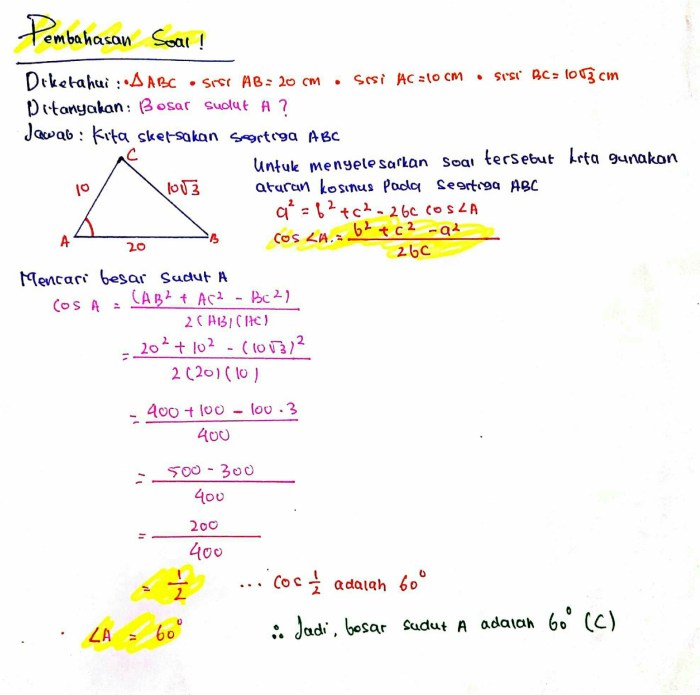 Pembahasan Soal!
Diketahui : • △ABC • sisi AB = 20 cm • sisi AC = 10 cm • sisi BC = 10√3 cm
Ditanyakan : Besar sudut A ?
Jawab : Kita sketsakan segitiga ABC
C
10
10√3
A
20
B
Untuk menyelesaikan soal tersebut kita gunakan
aturan kosinus pada segitiga ABC
a² = b² + c² - 2bc cos∠A
cos ∠A = b² + c² - a²
2bc
Mencari besar sudut A
cos A = (AB² + AC² - BC²)
2(AB)(AC)
= 20² + 10² - (10√3)²
2(20)(10)
= 400 + 100 - 100 . 3
400
= 500 - 300
400
= 200
400
= 1/2 ... cos 1/2 adalah 60°
∠A = 60° ∴ Jadi, besar sudut A adalah 60° (C)